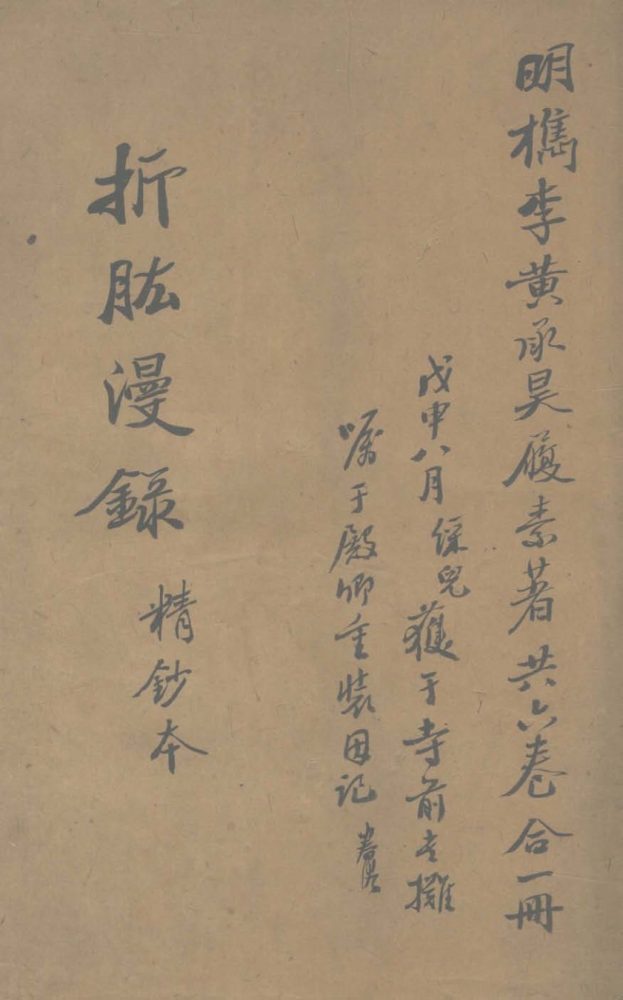 明檇李黄承昊履素著共六卷合一冊
戊申八月保兒獲于寺前書攤
囑于殿卿重裝因記
折肱漫錄
精鈔本